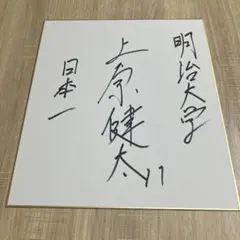 明治大学
上原健太
11
日本一